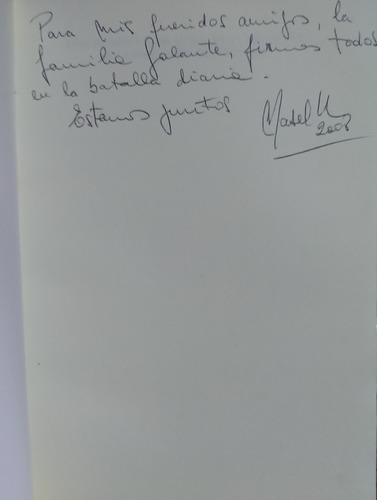 Para mis queridos amigos, la
familia Galante, firmes todos
en la batalla diaria.
Estamos juntos
2008